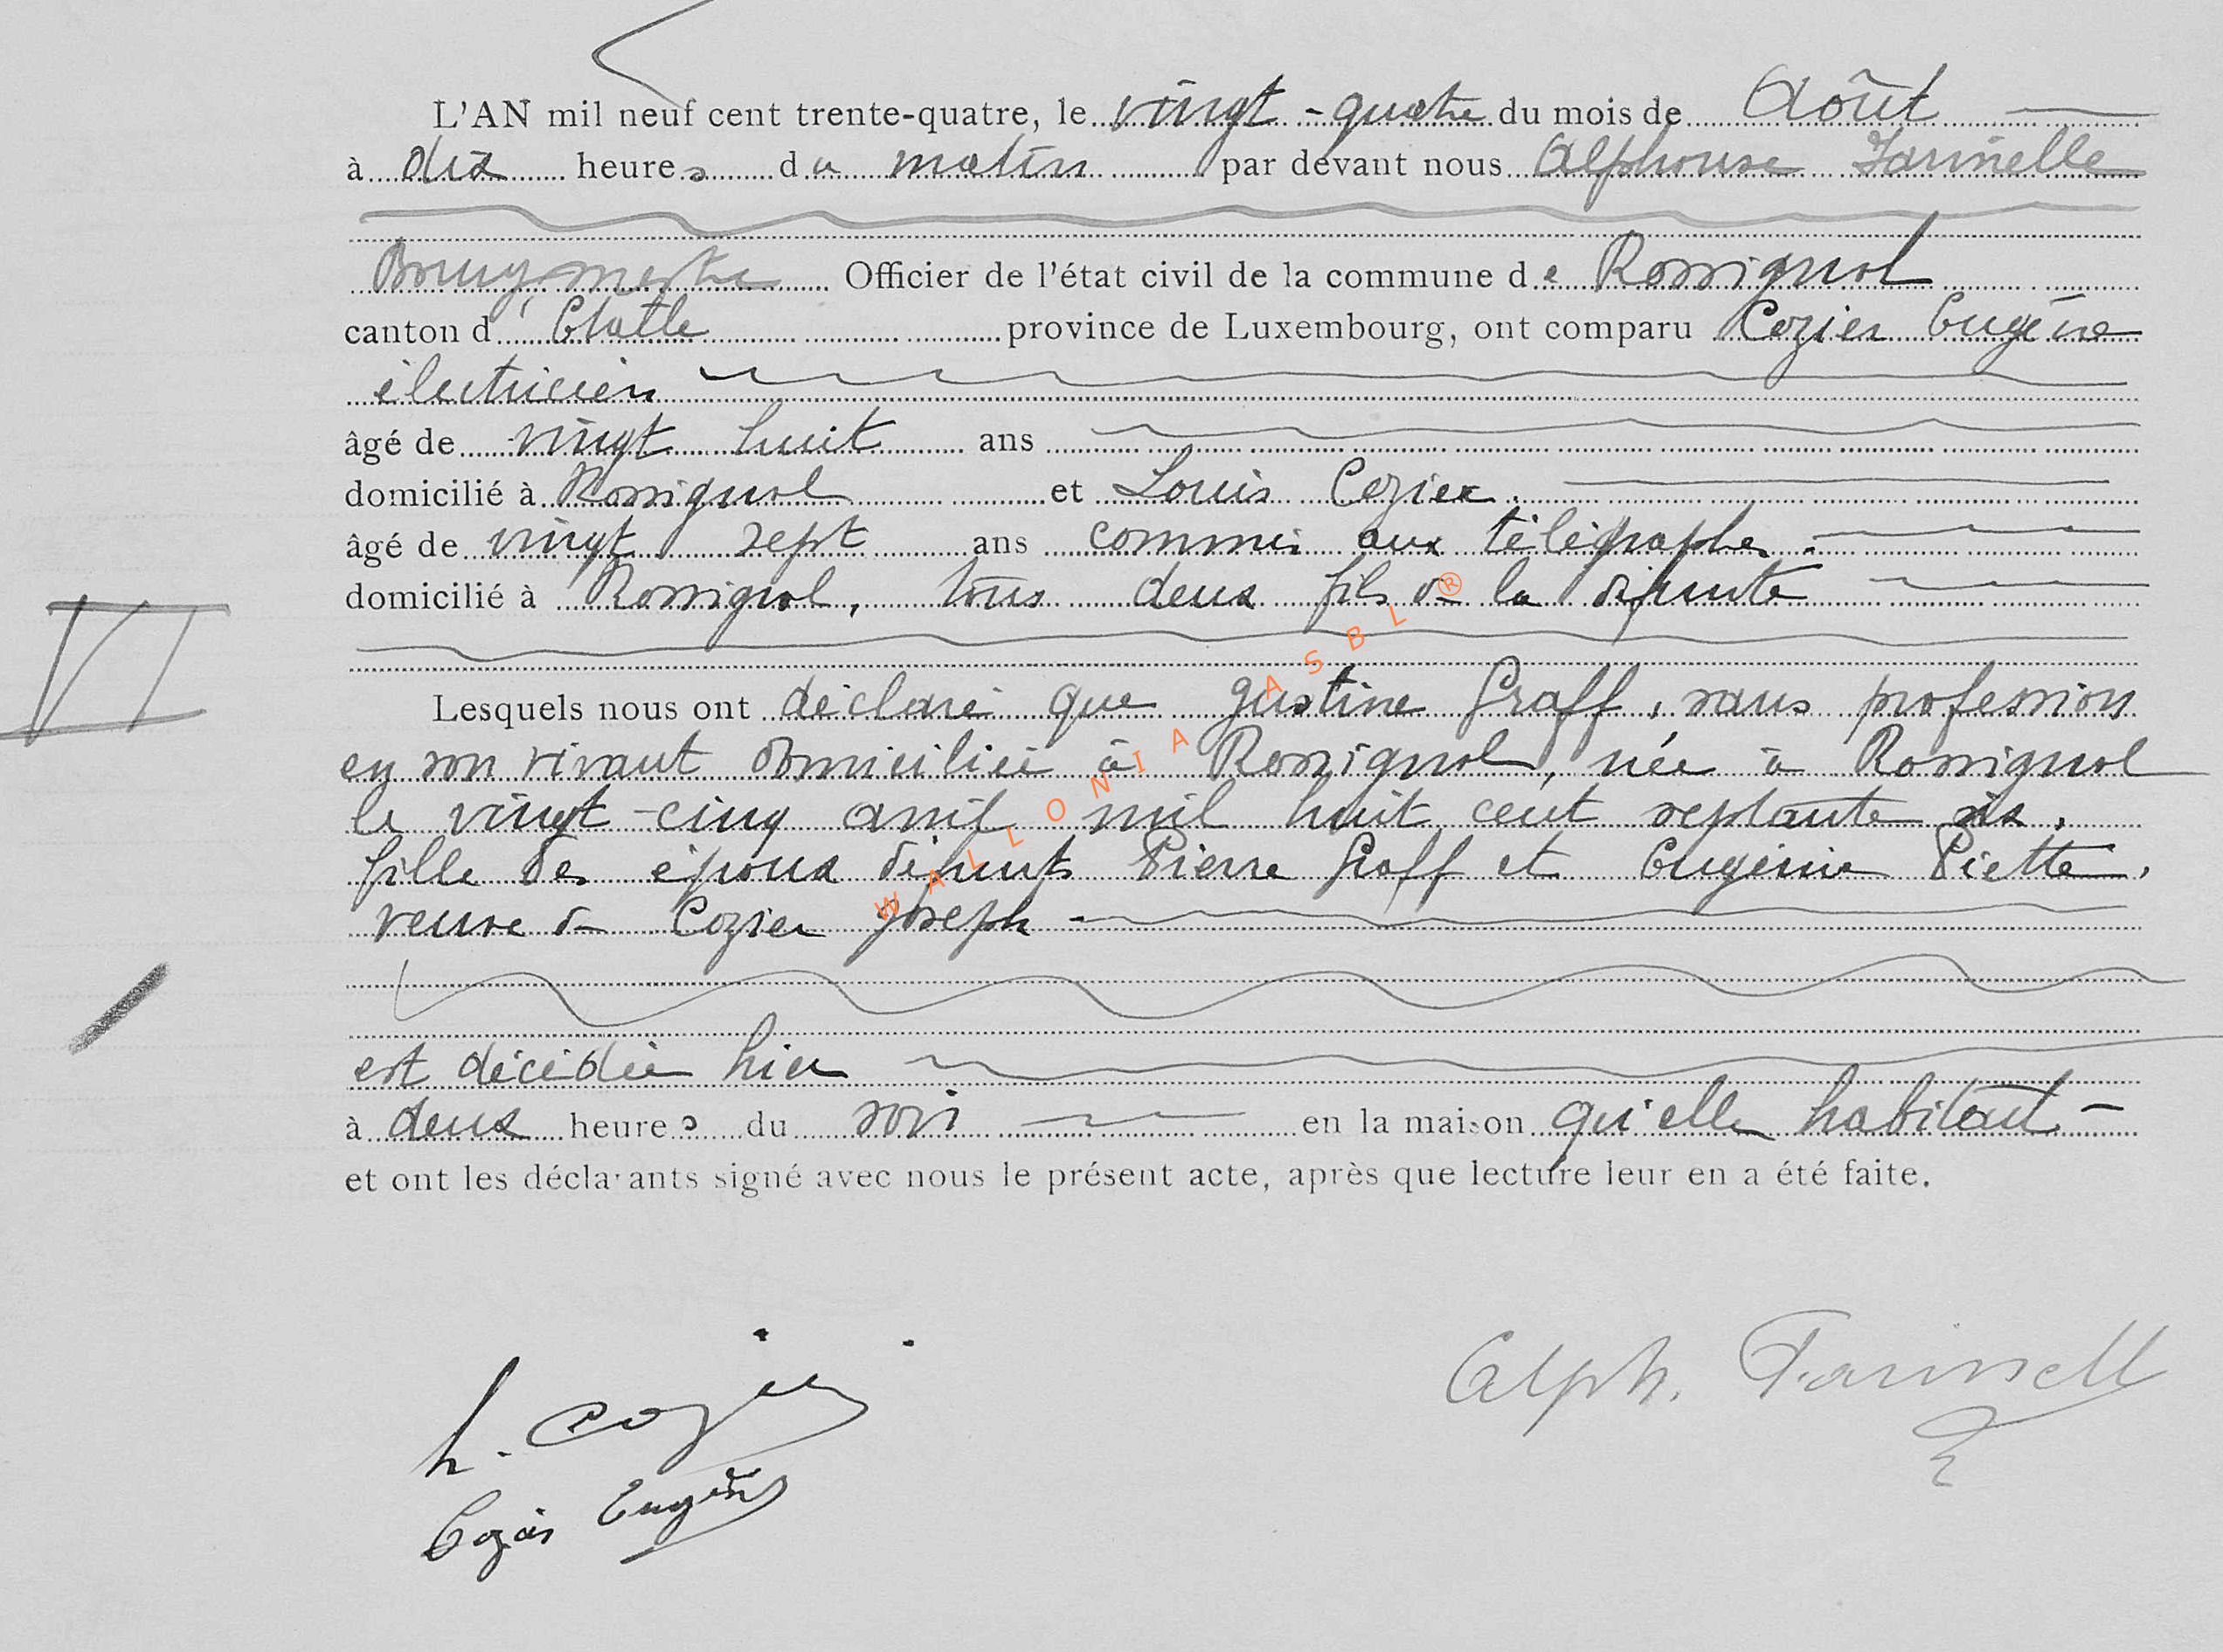 L'AN mil neuf cent trente-quatre, le vingt-quatre du mois de Août
à dix heures du matin par devant nous Alphonse Farinelle
Bourgmestre Officier de l'état civil de la commune de Rossignol
canton d'Etalle province de Luxembourg, ont comparu Cozier Eugène
électricien
âgé de vingt huit ans
domicilié à Rossignol et Louis Cozier.
âgé de vingt sept ans commis aux télégraphes.
domicilié à Rossignol, tous deux fils de la défunte
Lesquels nous ont déclaré que Justine Graff, sans profession
en son vivant domiciliée à Rossignol, née à Rossignol
le vingt-cinq avril mil huit cent septante six,
fille des époux défunts Pierre Graff et Eugénie Piette,
veuve de Cozier Joseph -
est décédée hier
à deux heures du soir en la maison qu'elle habitait -
et ont les déclarants signé avec nous le présent acte, après que lecture leur en a été faite.
L. Cozier
Alph. Farinelle
Cozier Eugène
VI
WALLONIA ASBL ®